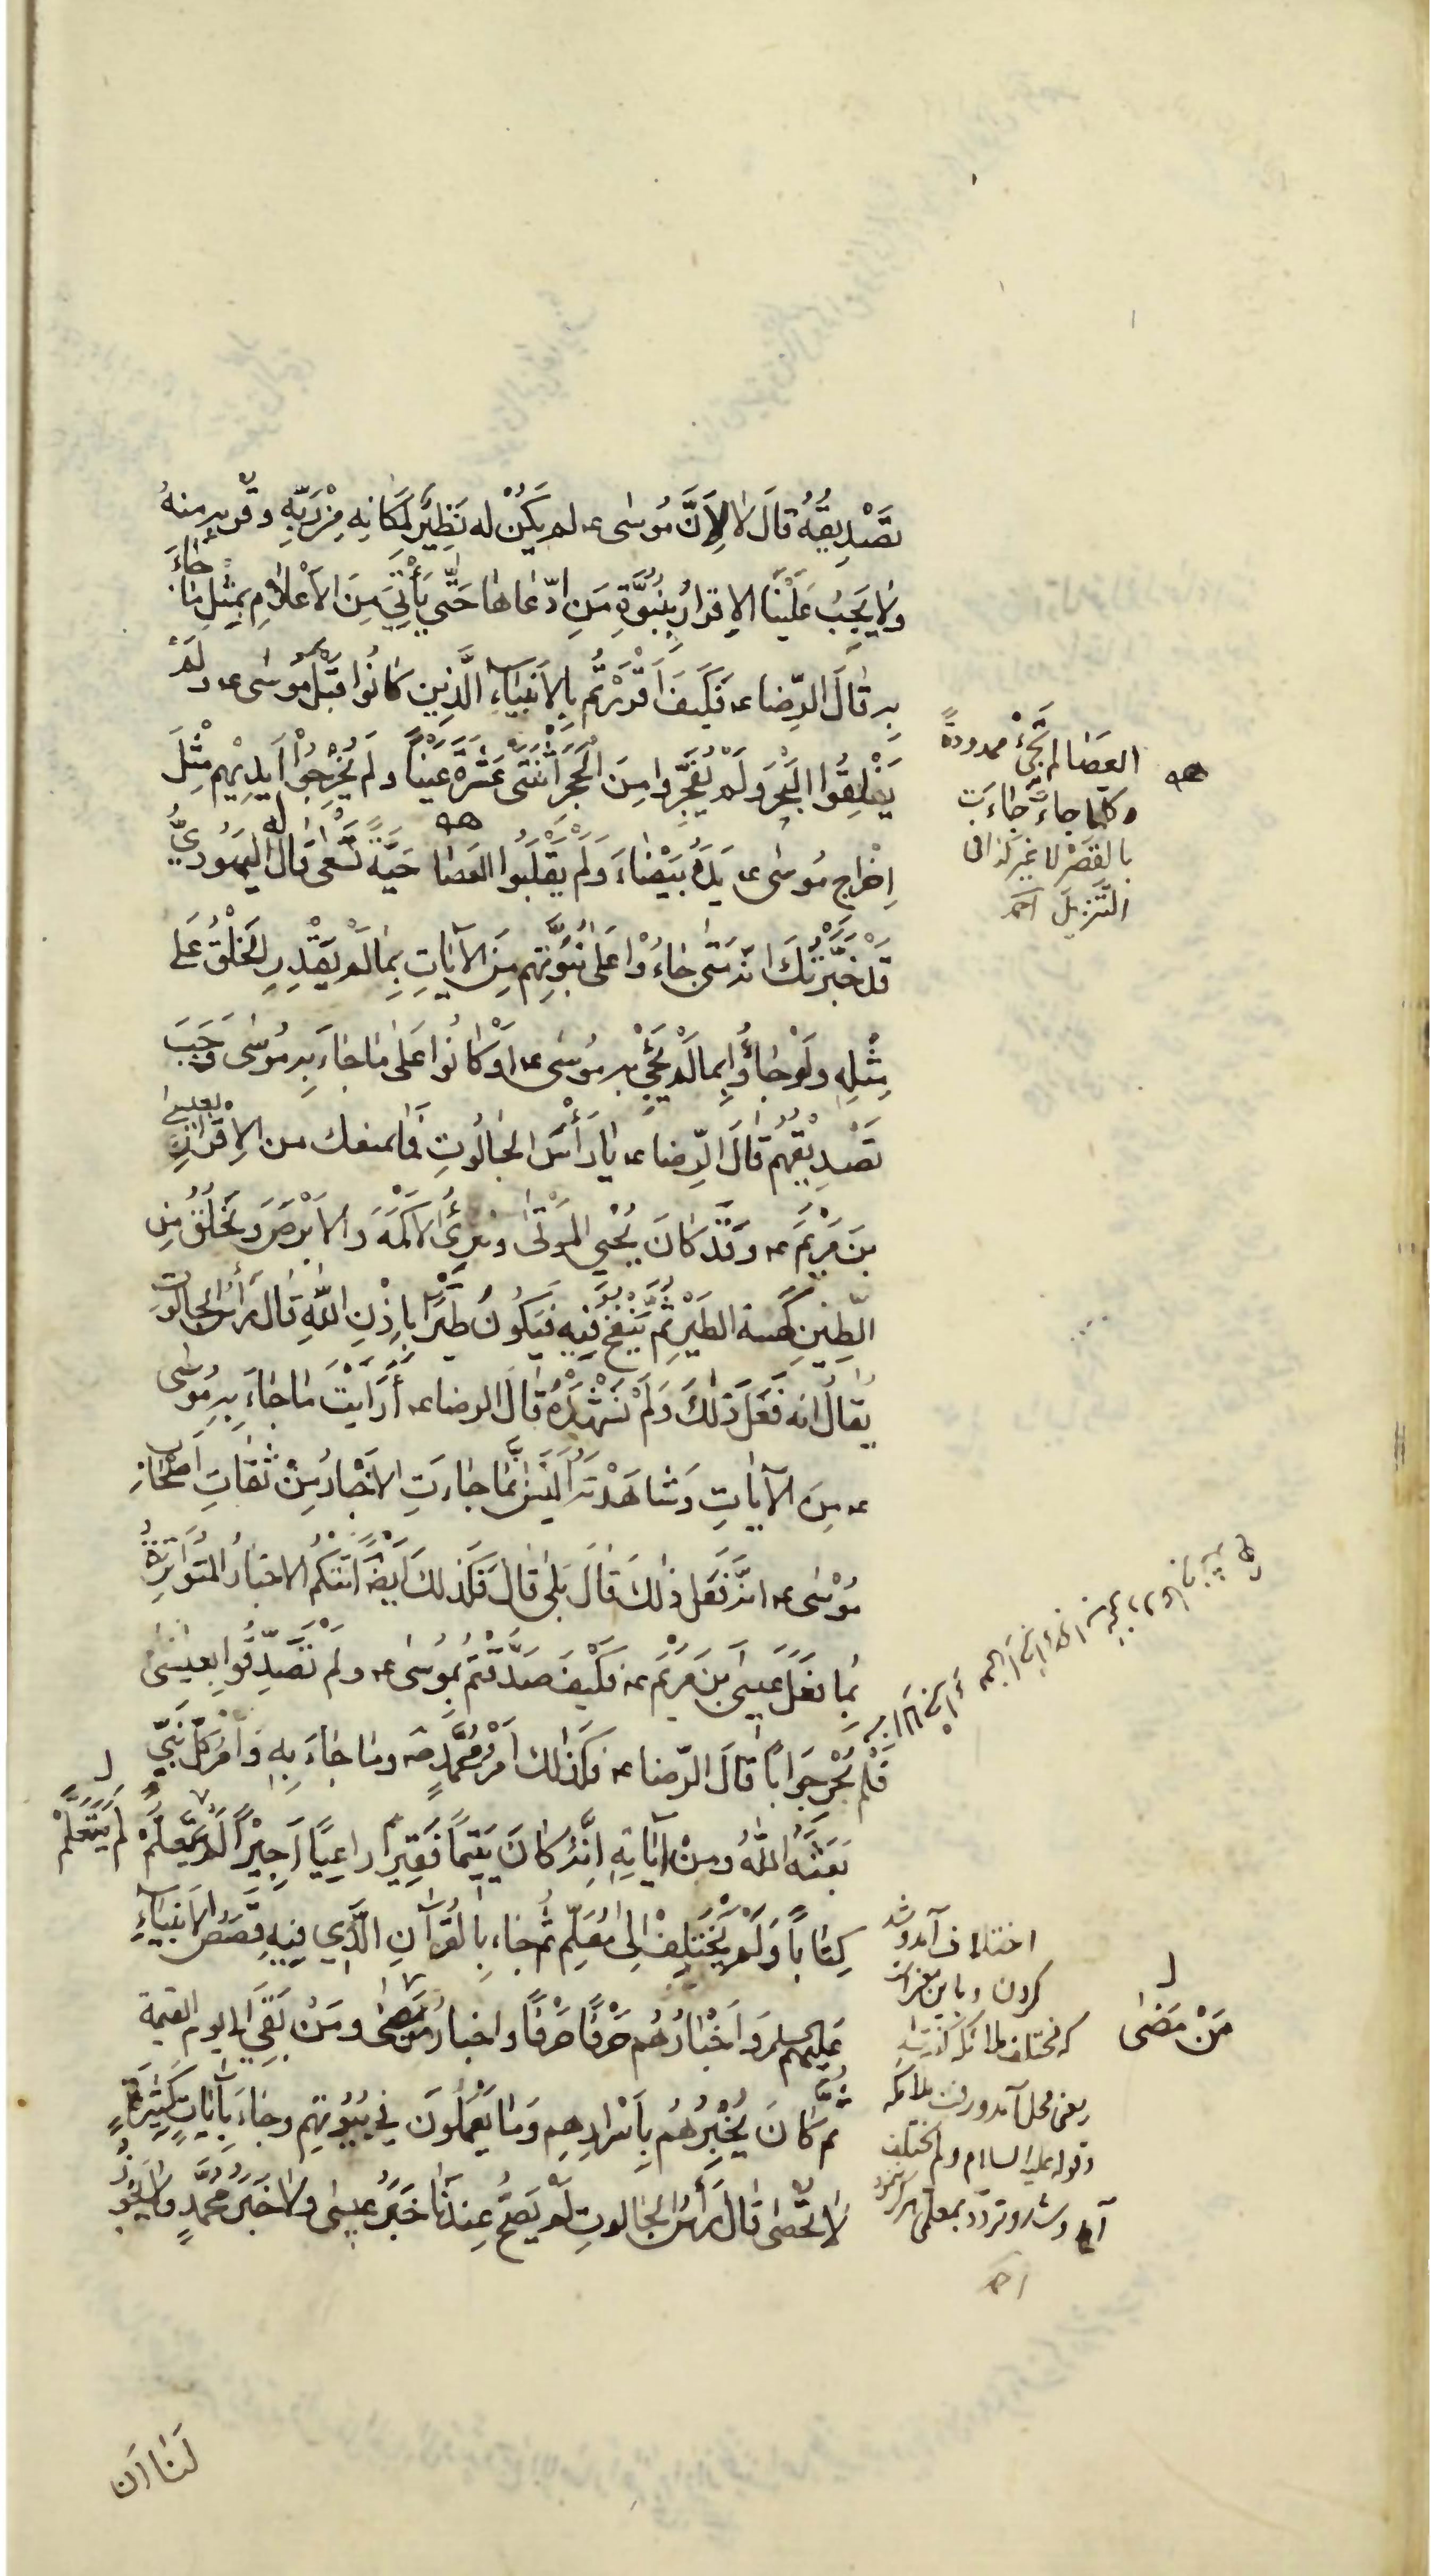 تَصْدِيقُهُ قَالَ لَا لِاَنَّ مُوسٰى ع لم يَكُنْ له نَظِيرٌ لِمَكَانِهِ مِنْ رَبِّهِ وقُربِهِ منهُ
ولا يَجِبُ عَلَيْنَا الاِقرارُ بِنُبُوَّةِ مَنِ ادّعاها حَتّٰى يَأْتِيَ مِنَ الاَعْلامِ بِمِثْلِ مَا جَاءَ
بِهِ قَالَ الرِّضا ع فَكَيفَ اَقْرَرْتُم بِالاَنبِيَاءِ الَّذِينَ كَانُوا قَبْلَ مُوسٰى ع ولَمْ
يَفْلِقُوا الْبَحْرَ وَلَمْ يُفَجِّرُوا مِنَ الْحَجَرِ اثْنَتَى عَشْرَةَ عَيْنًا ولَم يُخْرِجُوْا اَيدِيْهِم مِثْلَ
اِخْرَاجِ مُوسٰى ع يَدَهُ بَيْضَاءَ وَلَمْ يَقْلِبُوا العَصَا حَيَّةً تَسْعٰى قَالَ له اليَهُودِيُّ
قَدْ خَبَّرْتُكَ انّهُ مَتٰى جَاءُوْا عَلٰى نُبُوَّتِهِم مِنَ الآيَاتِ بِمَا لَمْ يَقْدِرِ الخَلْقُ عَلٰى
مِثْلِهِ ولَوْ جَاءُوا بِما لَمْ يَجِئْ به مُوسٰى ع اَوْ كَانُوا عَلٰى مَا جَاءَ بِهِ مُوسٰى وَجَبَ
تَصْدِيْقُهُم قَالَ الرِّضا ع يَا رَأْسَ الجَالُوتِ فَمَا يمنعك من الاِقرَارِ بعيسى
بنِ مَرْيَمَ ع وقَدْ كَانَ يُحْيِي المَوْتٰى ويُبرِئُ الاَكْمَهَ وَالاَبْرَصَ ويَخْلُقُ مِنَ
الطِّينِ كَهَيئَةِ الطَيْرِ ثُمَّ يَنْفُخُ فِيْهِ فَيَكُونُ طَيْرًا بِاِذْنِ اللّٰهِ قَالَ رَأْسُ الجالوتِ
يُقَالُ انه فَعَلَ ذٰلِكَ وَلَمْ نَشْهَدْهُ قَالَ الرضا ع أَرَأَيْتَ مَا جَاءَ بِهِ مُوسٰى
ع مِنَ الآيَاتِ وَشَاهَدْتَهُ اَلَيْسَ اِنَّمَا جَاءَتِ الاَخْبَارُ مِنْ ثِقَاتِ اَصْحَابِ
مُوْسٰى ع انَّهُ فَعَلَ ذٰلِكَ قَالَ بَلٰى قَالَ فَكَذٰلِكَ اَيْضًا اَتَتْكُمُ الاخبَارُ المُتَوَاتِرَةُ
بِمَا فَعَلَ عيسَى بنُ مَرْيَمَ ع فكَيْفَ صَدَّقْتُمْ بِمُوسٰى ع ولَمْ تُصَدِّقُوا بِعيسٰى
فَلَم يُحِرْ جَوَابًا قَالَ الرِّضا ع فكَذٰلك اَمْرُ مُحَمَّدٍ ص وما جَاءَ بِهِ وَاَمْرُ كُلِّ نَبِيٍّ
بَعَثَهُ اللّٰهُ ومِنْ آيَاتِهِ اِنَّهُ كَانَ يَتِيمًا فَقِيرًا رَاعِيًا اَجِيْرًا لَمْ يَتَعَلَّمْ لَمْ يَتَعَلَّمْ
كِتَابًا وَلَمْ يَخْتَلِفْ اِلٰى مُعَلِّمٍ ثُمّ جَاءَ بِالقُرآنِ الَّذِي فِيهِ قِصَصُ الاَنبِيَاءِ
عَلَيهم وَاَخْبَارُهُم حَرْفًا حَرْفًا واخبارُ مَنْ مَضٰى ومَنْ بَقِيَ الى يوم القيمة
ثُمَّ كَانَ يُخْبِرُهُم بِاَسْرَارِهِم وَمَا يَعْمَلُونَ فِي بُيُوتِهِم وجَاءَ بِآيَاتٍ كَثِيرَةٍ
لَا تُحْصٰى قَالَ رَأْسُ الجَالوتِ لَمْ يَصِحَّ عِنْدَنَا خَبَرُ عِيسٰى ولا خَبَرُ مُحَمَّدٍ ولا يَجُوزُ
لَنَا اَن
العَصَا لم تَجِئْ ممدودةً
وكلما جاءت جَاءَت
بالقَصْرِ لا غير كذا فى
التَّنْزِيل احمد
اختلاف آمد وشد
كردن
مَنْ مَضٰى
يعنى محل آمد ورفت ملائكه
وقوله عليه السلام ولم يختلف
احمد